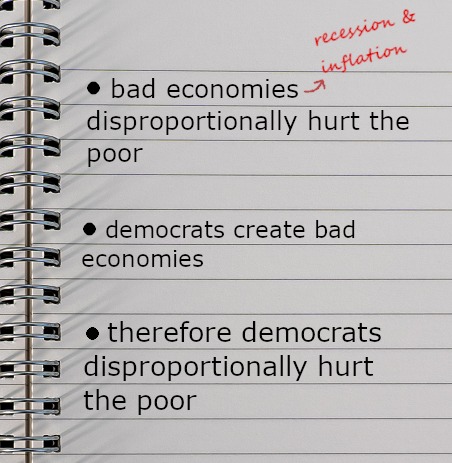 recession &
inflation
• bad economies
disproportionally hurt the
poor
• democrats create bad
economies
• therefore democrats
disproportionally hurt
the poor